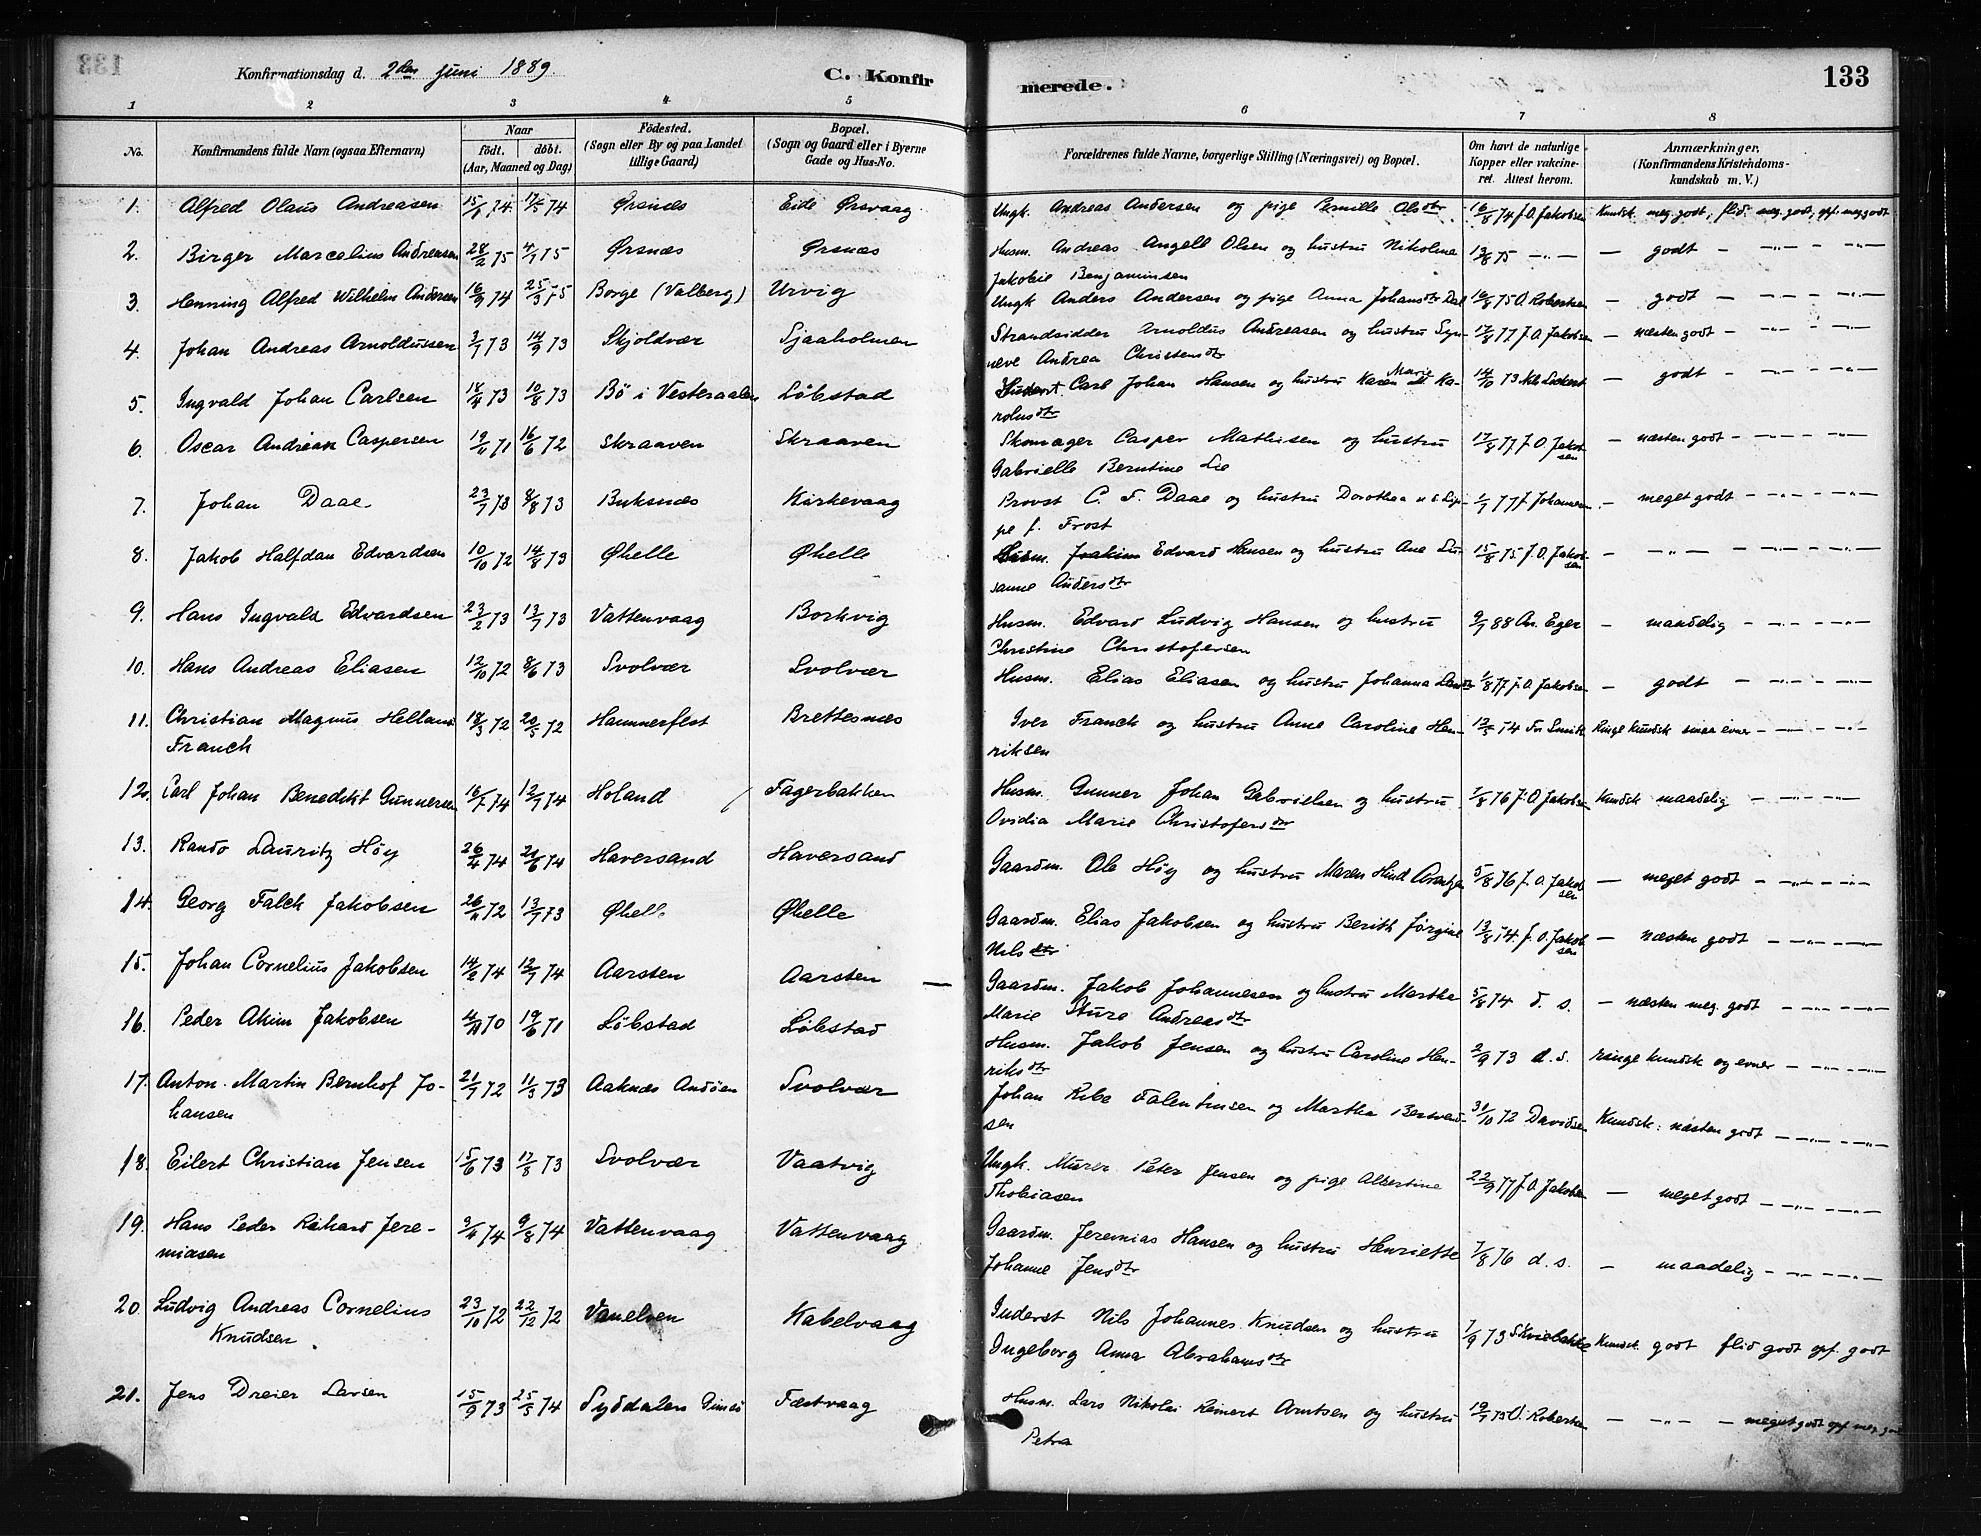 Konfirmationsdag d. 2den Juni 1889.
C. Konfirmerede.
133
1 2 3 4 5 6 7 8
No.
Konfirmandens fulde Navn (ogsaa Efternavn)
Naar
födt. döbt.
(Aar, Maaned og Dag)
Födested.
(Sogn eller By og paa Landet
tillige Gaard)
Bopæl.
(Sogn og Gaard eller i Byerne
Gade og Hus-No.
Forældrenes fulde Navne, borgerlige Stilling (Næringsvei) og Bopæl.
Om havt de naturlige
Kopper eller vakcine-
ret. Attest herom.
Anmærkninger.
(Konfirmandens Kristendoms-
kundskab m. V.)
1. Alfred Olaus Andreasen 15/1 74. 17/5 74 Ørsnæs Eide Ørsvaag Ungk. Andreas Andersen og pige Pernille Olsdtr 16/8 74 J. O. Jakobsen Kundsk. meg. godt, flid meg. godt, opf. meg godt
2. Birger Marcelius Andreasen 28/2 75 4/7 75 Ørsnæs Ørsnæs Husm. Andreas Angell Olsen og hustru Nikoline 13/8 75 — " — — godt — " — — " —
Jakobie Benjaminsen
3. Henning Alfred Wilhelm Andersen 16/9 74 25/3 75 Borge (Valberg) Urvig Ungk Anders Andersen og pige Anna Johansdtr Dal 16/8 75 O. Robertsen — godt — — " — — " —
4. Johan Andreas Arnoldussen 3/7 73 14/9 73 Skjoldvær Sjaaholmen Strandsidder Arnoldus Andreasen og hustru Syn- 17/8 77 J. O. Jakobsen — næsten godt — — " — — " —
neve Andrea Christensdtr
5. Ingvald Johan Carlsen 18/4 73 10/8 73 Bö i Vesteraalen Löbstad Carl Johan Hansen og hustru Karen Marie Ka- 14/10 73 — godt — — " — — " —
rolusdtr
6. Oscar Andreas Caspersen 19/11 71 16/6 72 Skraaven Skraaven Skomager Casper Mathisen og hustru 17/8 77 J. O. Jakobsen — næsten godt — — " — — " —
Gabrielle Berntine Lie
7. Johan Daae 23/7 73 8/8 73 Buksnæs Kirkevaag Provst C. F. Daae og hustru Dorothea 1/7 77 J. Johansen — meget godt — — " — — " —
f. Frost
8. Jakob Halfdan Edvardsen 10/10 72 14/8 73 Øhelle Øhelle Husm. Joakim Edvard Hansen og hustru Ane Su- 15/8 75 J. O. Jakobsen — — " — — — " — — " —
sanne Andersdtr
9. Hans Ingvald Edvardsen 23/2 73 13/7 73 Vattenvaag Borkvig Husm. Edvard Ludvig Hansen og hustru 9/7 88 An. Eger — maadelig — — " — — " —
Christine Christofersen
10. Hans Andreas Eliasen 12/10 72 8/6 73 Svolvær Svolvær Husm. Elias Eliasen og hustru Johanna 1/8 77 J. O. Jakobsen — godt — — " — — " —
11. Christian Magnus Helland 18/3 72 20/5 72 Hammerfest Brettesnæs Iver Franck og hustru Anne Caroline Hen- 12/5 74 Fr Smith Ringe kundsk smaa evner — — " — — " —
Franck riksen
12. Carl Johan Benedikt Gunnersen 16/7 74 12/9 74 Holand Fagerbakken Husm. Gunner Johan Gabrielsen og hustru 1/8 76 J. O. Jakobsen Kundsk maadelig — — " — — " —
Ovidia Marie Christofersdtr
13. Rando Lauritz Höy 26/4 74 21/6 74 Haversand Haversand Gaardm. Ole Höy og hustru Maren Hind Arentzen 5/8 76 J. O. Jakobsen — meget godt — — " — — " —
14. Georg Falck Jakobsen 26/11 72 13/7 73 Øhelle Øhelle Gaardm. Elias Jakobsen og hustru Berith Jörgine 13/8 74. J. O. Jakobsen — næsten godt — — " — — " —
Nilsdtr
15. Johan Cornelius Jakobsen 14/2 74 12/7 74 Aarsten Aarsten — Gaardm. Jakob Johannesen og hustru Martha 5/8 74 d. s. — næsten meg. godt — — " — — " —
Marie Sture Andreasdtr
16. Peder Akim Jakobsen 4/11 70 19/6 71 Löbstad Löbstad Husm. Jakob Jensen og hustru Caroline Hen- 2/9 73 d. s. ringe kundsk og evner — — " — — " —
riksdtr
17. Anton Martin Bernhof Jo- 21/7 72 11/3 73 Aaknæs Andöen Svolvær Johan Ribe Falentinsen og Martha 31/10 72 Davidsen Kundsk: næsten godt — — " — — " —
hansen sen
18. Eilert Christian Jensen 15/6 73 17/8 73 Svolvær Vaatvig Ungk. Murer Peter Jensen og pige Albertine 22/9 77 J. O. Jakobsen — meget godt — — " — — " —
Thobiasen
19. Hans Peder Rikard Jere- 3/4 74 9/8 74 Vattenvaag Vattenvaag Gaardm. Jeremias Hansen og hustru Henriette 7/8 76 d. s. — maadelig — — " — — " —
miasen Johanne Jensdtr
20. Ludvig Andreas Cornelius 23/10 72 22/12 72 Vanelven Kabelvaag Inderst Nils Johannes Knudsen og hustru 7/9 73 Kundsk. godt flid godt opf. godt
Knudsen Ingeborg Anna Abrahamsdtr
21. Jens Dreier Larsen 15/9 73 25/5 74 Syddalen Gimsö Fæstvaag Husm. Lars Nikolai Reinert Arntsen og hustru 19/7 75 O. Robertsen — — " — — meget godt opf. meg. godt
Petra